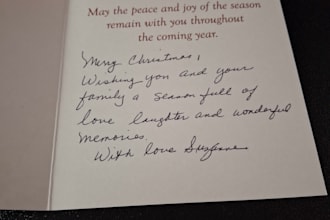 May the peace and joy of the season
remain with you throughout
the coming year.
Merry Christmas,
Wishing you and your
family a season full of
love laughter and wonderful
memories.
With love Suzanne